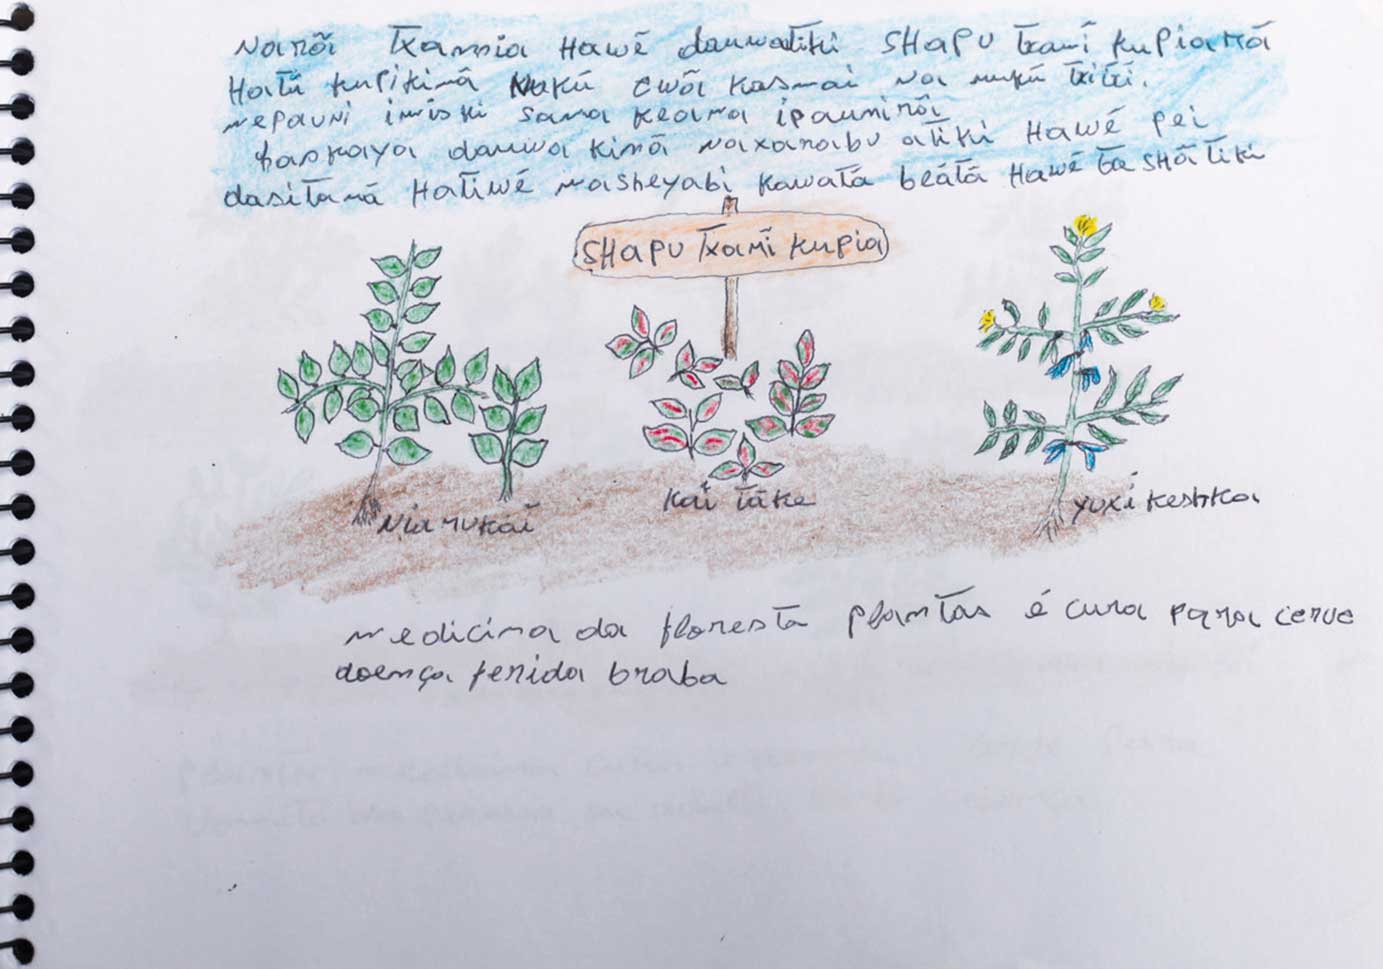 Narõã Txamia Hawẽ dauwatiki SHAPU txamĩ kupiamã
Hatũ kupikinã Nukũ ewõã kasmai na nukũ txitxi.
nepauni iniski sama keama ipaunirõã
haskaya dauwa kinã naxanabu atiki Hawẽ pei
dasitamã Hatiwẽ masheyabi kawatã beãtã Hawẽ ta shãtiki
SHAPU TxamĨ kupia
Nia mukaĩ
Kaĩ tãke
yuxi keshka
medicina da floresta plantas é cura para cerve
doença ferida braba